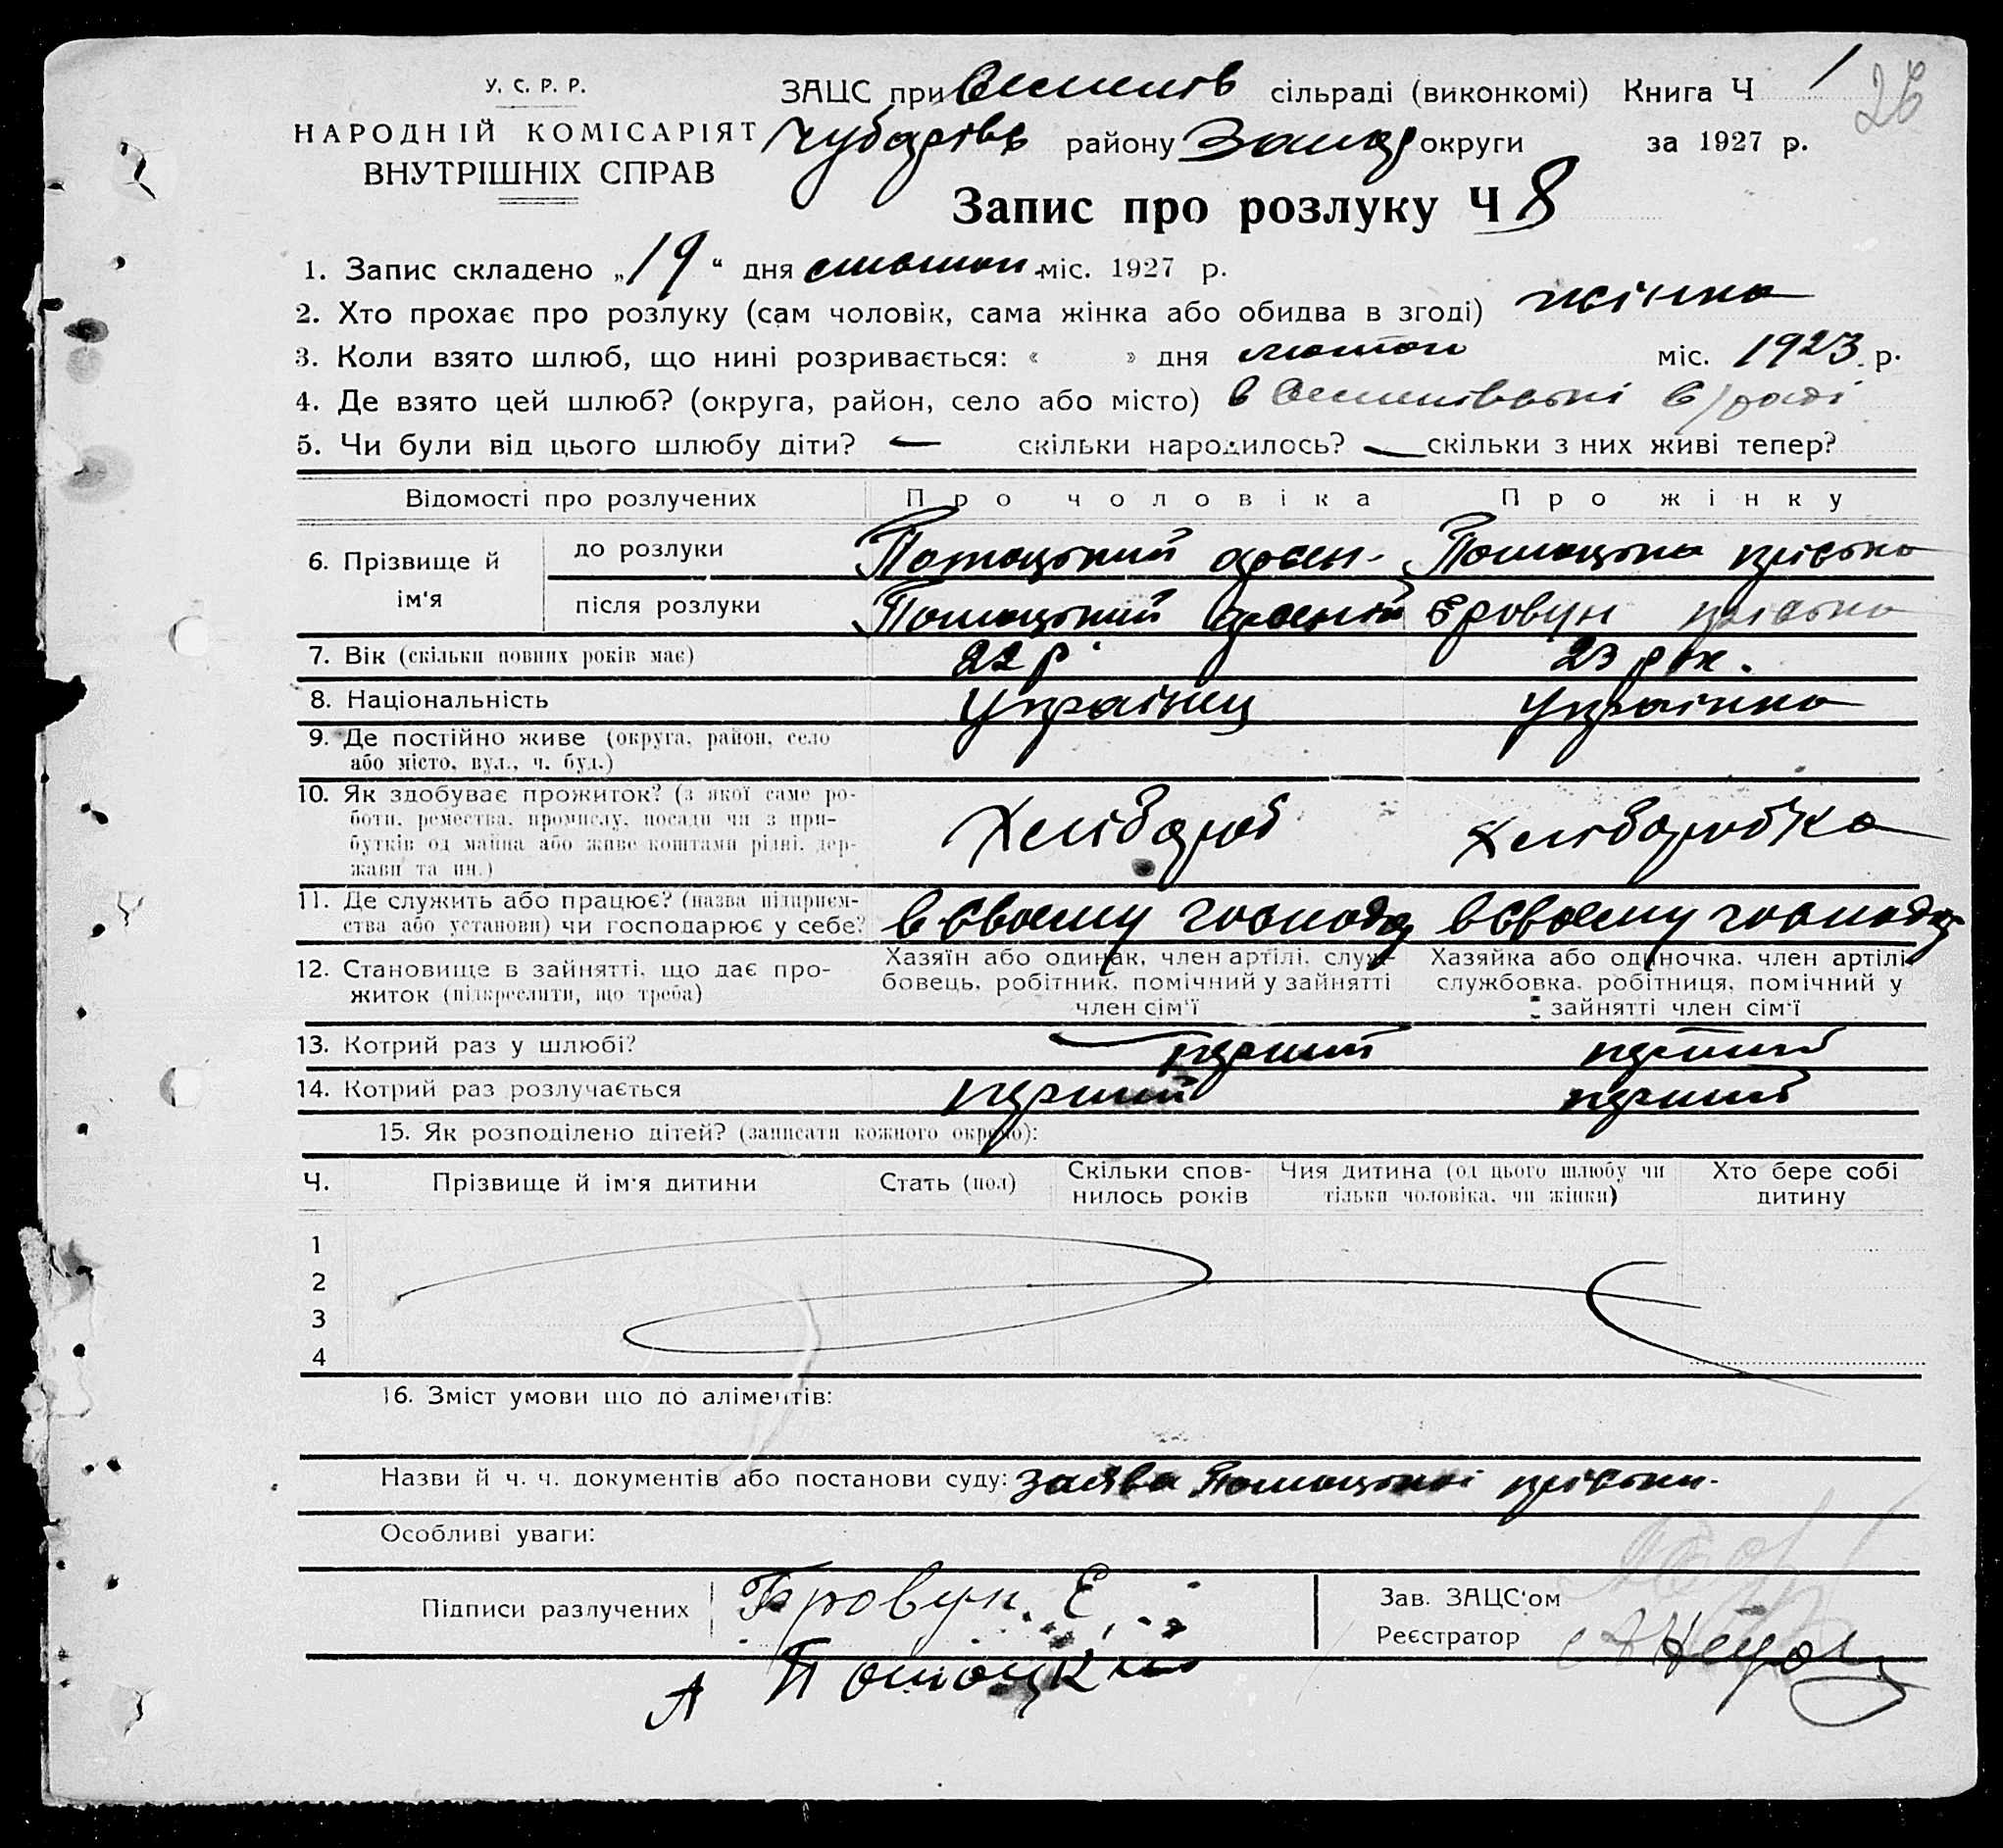 У. С. Р. Р.
НАРОДНІЙ КОМІСАРІЯТ
ВНУТРІШНІХ СПРАВ
ЗАЦС при сільраді (виконкомі) Книга Ч 1
26
Чубарівс району Запор округи за 1927 р.
Запис про розлуку Ч 8
1. Запис складено „19“ дня міс. 1927 р.
2. Хто прохає про розлуку (сам чоловік, сама жінка або обидва в згоді) жінка
3. Коли взято шлюб, що нині розривається: « » дня лютого міс. 1923 р.
4. Де взято цей шлюб? (округа, район, село або місто) в с/раді
5. Чи були від цього шлюбу діти? — скільки народилось? — скільки з них живі тепер?
Відомості про розлучених Про чоловіка Про жінку
6. Прізвище й ім'я
до розлуки Потоцький Арсен. Потоцька Пріська
після розлуки Потоцький Арсентій Бровун Пріська
7. Вік (скільки повних років має) 22 р. 23 рок.
8. Національність Українец Українка
9. Де постійно живе (округа, район, село
або місто, вул., ч. буд.)
10. Як здобуває прожиток? (з якої саме ро-
боти, ремества, промислу, посади чи з при-
бутків од майна або живе коштами рідні, дер-
жави та ин.)
Хлібороб Хліборобка
11. Де служить або працює? (назва підприєм-
ства або установи) чи господарює у себе?
в своєму господар в своєму господар
12. Становище в зайнятті, що дає про-
житок (підкреслити, що треба)
Хазяїн або одинак, член артілі, служ-
бовець, робітник, помічний у зайнятті
член сім'ї
Хазяйка або одиночка, член артілі
службовка, робітниця, помічний у
зайнятті член сім'ї
13. Котрий раз у шлюбі? перший перший
14. Котрий раз розлучається перший перший
15. Як розподілено дітей? (записати кожного окремо):
Ч. Прізвище й ім'я дитини Стать (пол) Скільки спов-
нилось років Чия дитина (од цього шлюбу чи
тільки чоловіка, чи жінки) Хто бере собі
дитину
1
2
3
4
16. Зміст умови що до аліментів:
Назви й ч. ч. документів або постанови суду: Заява Потоцької Пріськи.
Особливі уваги:
Підписи разлучених Бровун. Е.
А Потоцкий
Зав. ЗАЦС'ом
Реєстратор